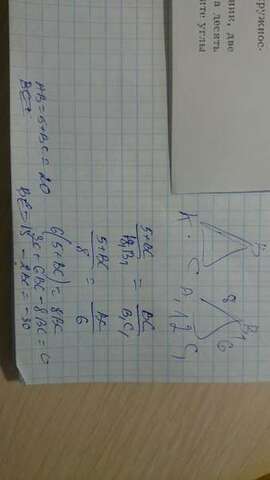 окружнос-
ании, две
а десять
ите углы
B
A C
B₁
8 6
A₁ 12 C₁
5+BC / A₁B₁ = BC / B₁C₁
5+BC / 8 = BC / 6
6(5+BC) = 8BC
30 + 6BC - 8BC = 0
-2BC = -30
BC = 15
AB = 5+BC = 20